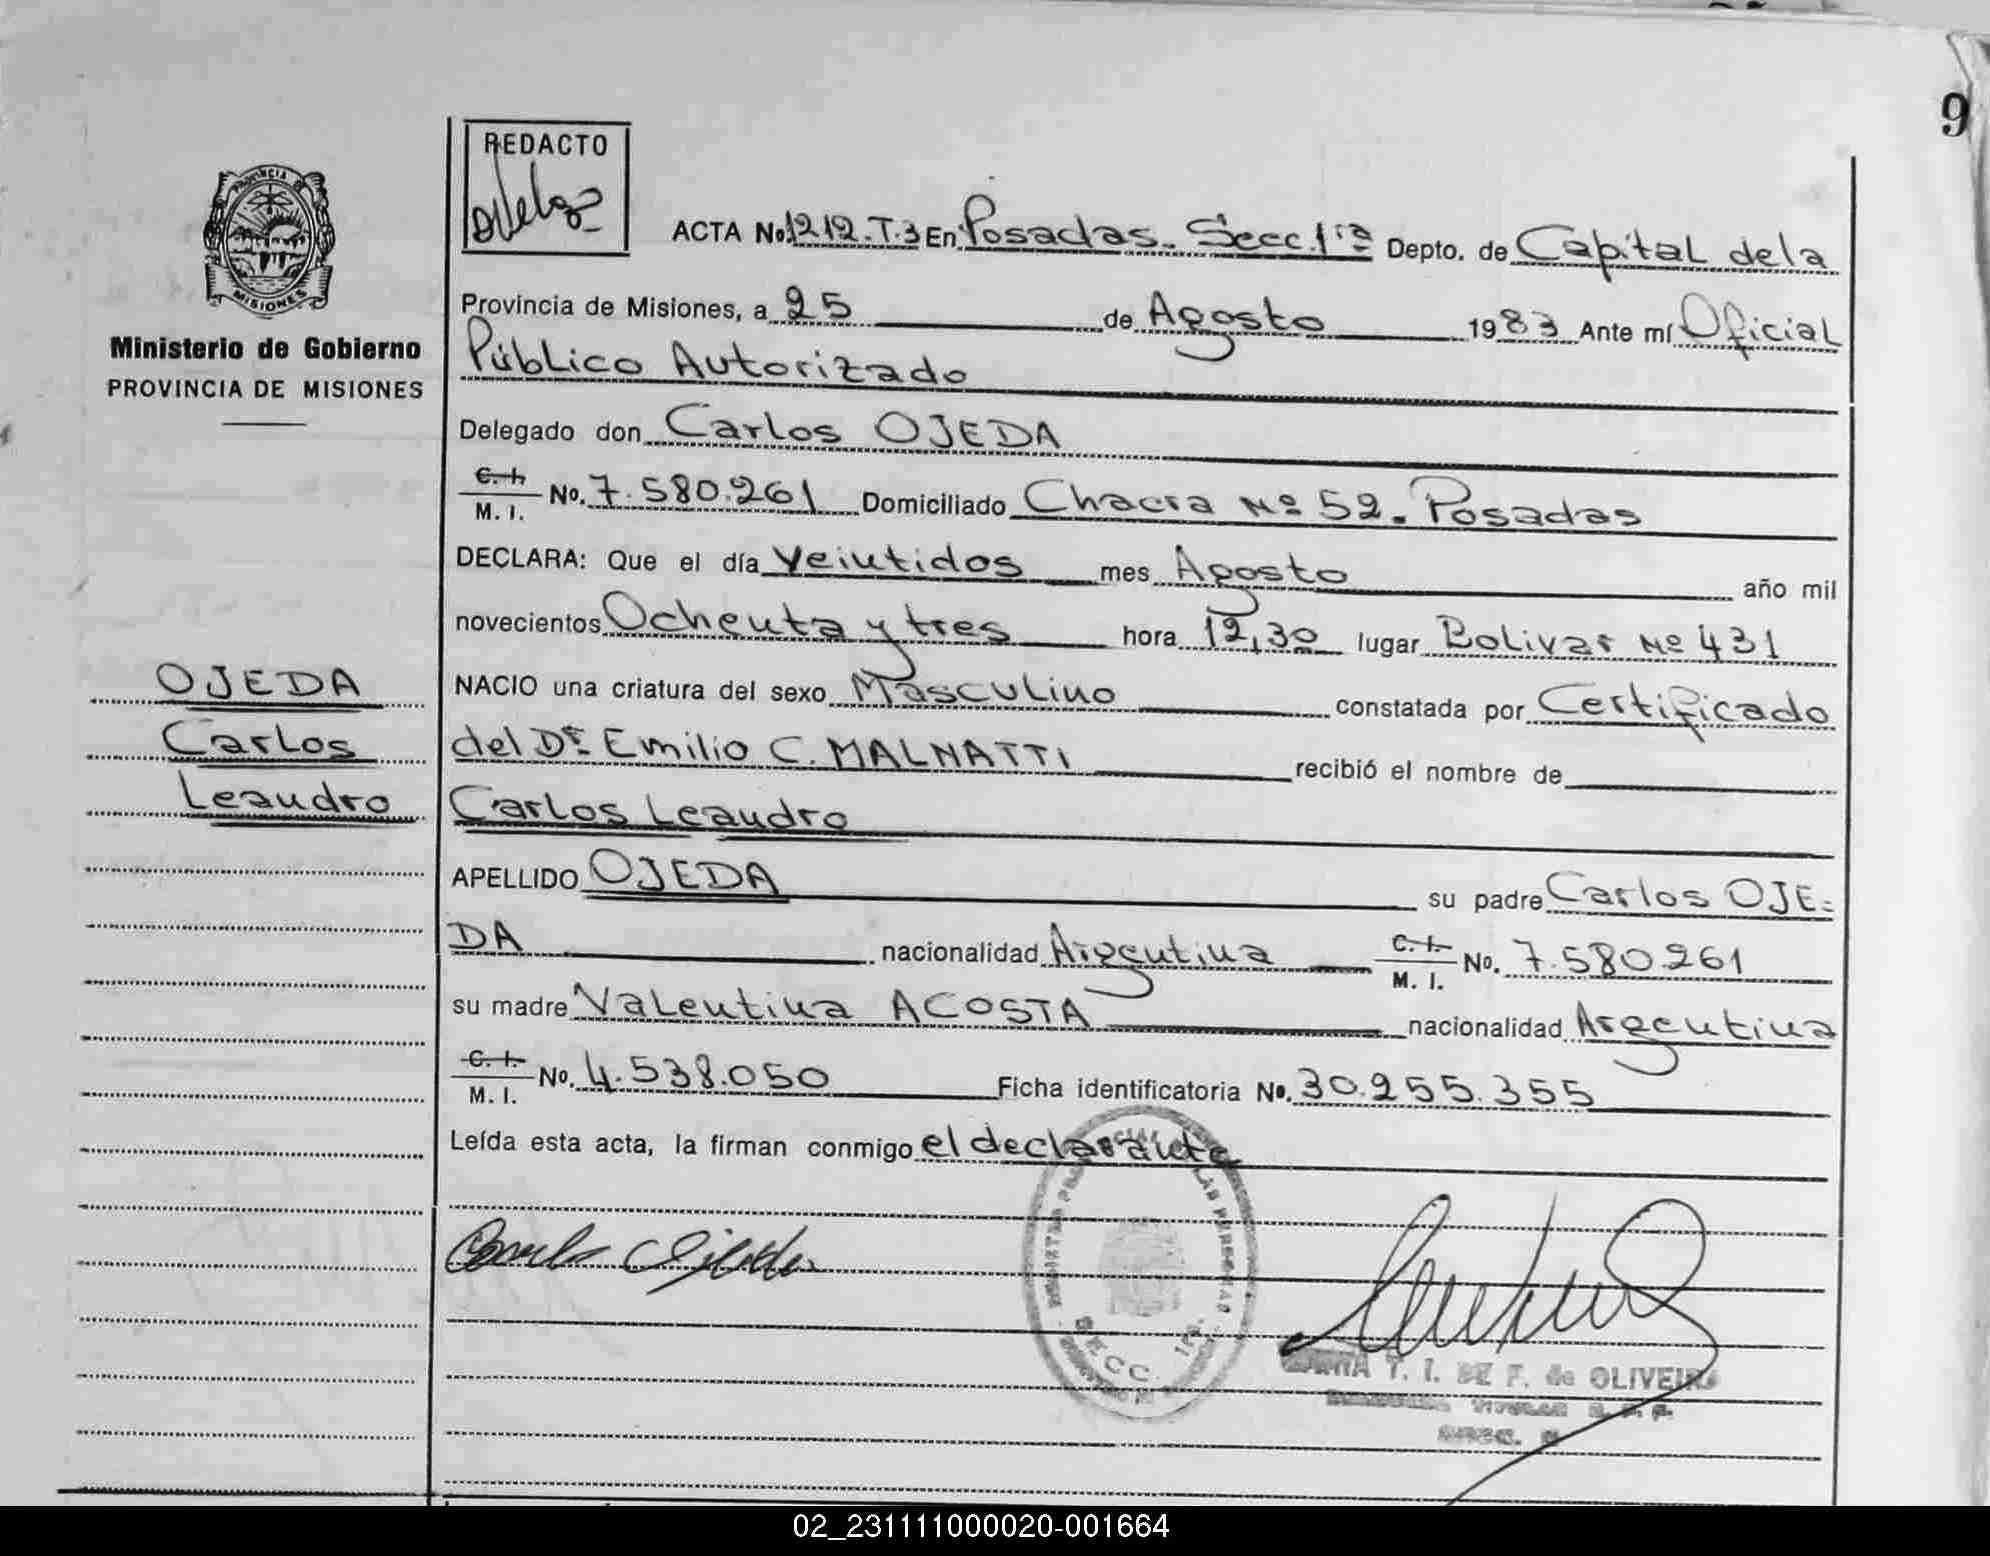 9
REDACTO
PROVINCIA DE
MISIONES
Ministerio de Gobierno
PROVINCIA DE MISIONES
OJEDA
Carlos
Leandro
ACTA No. 1212.T.3 En Posadas. Secc. 1ra Depto. de Capital de la
Provincia de Misiones, a 25 de Agosto 1983 Ante mí Oficial
Público Autorizado
Delegado don Carlos OJEDA
C. I. M. I. No. 7.580.261 Domiciliado Chacra Nº 52. Posadas
DECLARA: Que el día Veintidos mes Agosto año mil
novecientos Ochenta y tres hora 12,30 lugar Bolivar Nº 431
NACIO una criatura del sexo Masculino constatada por Certificado
del Dr. Emilio C. MALNATTI recibió el nombre de
Carlos Leandro
APELLIDO OJEDA su padre Carlos OJE=
DA nacionalidad Argentina C. I. M. I. No. 7.580.261
su madre Valentina ACOSTA nacionalidad Argentina
C. I. M. I. No. 4.538.050 Ficha identificatoria No. 30.255.355
Leída esta acta, la firman conmigo el declarante
Carlos Ojeda
SECC. 1ra.
T. I. DE F. de OLIVEIRA
TITULAR
SECC.
02_231111000020-001664